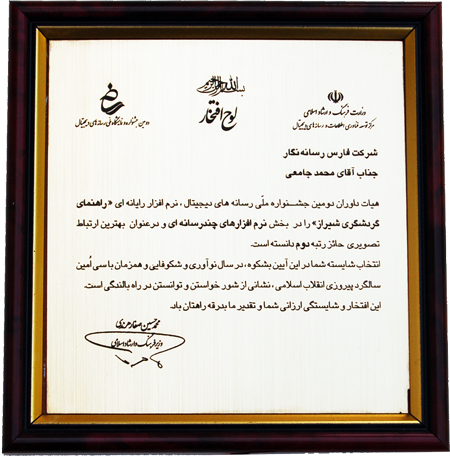 بسم الله الرحمن الرحیم
لوح افتخار
وزارت فرهنگ و ارشاد اسلامی
مرکز توسعه فناوری اطلاعات و رسانه های دیجیتال
دومین جشنواره و نمایشگاه ملی رسانه های دیجیتال
شرکت فارس رسانه نگار
جناب آقای محمد جامعی
هیات داوران دومین جشنواره ملّی رسانه های دیجیتال، نرم افزار رایانه ای «راهنمای
گردشگری شیراز» را در بخش نرم افزارهای چندرسانه ای و درعنوان بهترین ارتباط
تصویری حائز رتبه دوم دانسته است.
انتخاب شایسته شما در این آیین بشکوه، در سال نوآوری و شکوفایی و همزمان با سی اُمین
سالگرد پیروزی انقلاب اسلامی، نشانی از شور خواستن و توانستن در راه بالندگی است.
این افتخار و شایستگی ارزانی شما و تقدیر ما بدرقه راهتان باد.
محمدحسین صفارهرندی
وزیر فرهنگ و ارشاد اسلامی